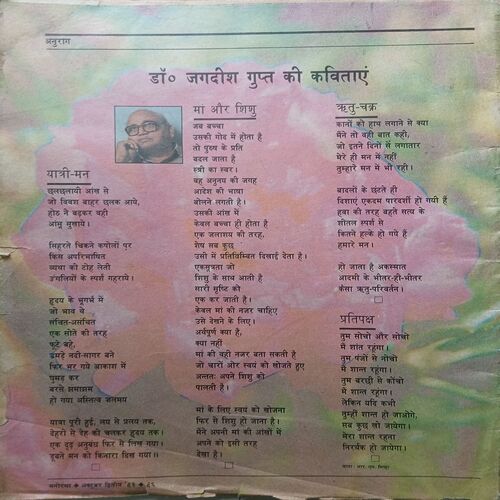 अनुराग
डॉ० जगदीश गुप्त की कविताएं
यात्री-मन
छलछलायी आंख से
जो विवश बाहर छलक आये,
होठ ने बढ़कर वही
आंसू सुखाये।
सिहरते चिकने कपोलों पर
किस अपरिभाषित
व्यथा की टोह लेती
उंगलियों के स्पर्श गहराये।
हृदय के भूगर्भ में
जो भाव थे
संचित-असंचित
एक सोते की तरह
फूटे बहे,
उमड़े नदी-सागर बने
फिर भर गये आकाश में
घुमड़ कर
बरसे झमाझम
हो गया अस्तित्व जलमय
यात्रा पूरी हुई, लय से प्रलय तक,
देहरी से देह की चलकर हृदय तक।
एक दृढ़ अनुबंध फिर से लिख गया।
डूबते मन को किनारा दिख गया।।
मां और शिशु
जब बच्चा
उसकी गोद में होता है
तो पुरुष के प्रति
बदल जाता है
स्त्री का स्वर।
वह अनुनय की जगह
आदेश की भाषा
बोलने लगती है।
उसकी आंख में
केवल बच्चा ही होता है
एक जलाशय की तरह,
शेष सब कुछ
उसी में प्रतिबिम्बित दिखाई देता है।
एकसूत्रता जो
शिशु के साथ आती है
सारी सृष्टि को
एक कर जाती है।
केवल मां की नजर चाहिए
उसे देखने के लिए।
अर्थपूर्ण क्या है,
क्या नहीं
मां की वही नजर बता सकती है
जो चारों ओर स्वयं को खोजते हुए
अन्ततः अपने शिशु को
पालती है।
मां के लिए स्वयं को खोजना
फिर से शिशु हो जाना है।
मैंने अपनी मां की आंखों में
अपने को इसी तरह
देखा है।
ऋतु-चक्र
कानों को हाथ लगाने से क्या
मैंने तो वही बात कही,
जो इतने दिनों से लगातार
मेरे ही मन में नहीं
तुम्हारे मन में भी रही।
बादलों के छंटते ही
दिशाएं एकदम पारदर्शी हो गयी हैं
हवा की तरह बहते सत्य के
शीतल स्पर्श से
कितने हल्के हो गये हैं
हमारे मन।
हो जाता है अकस्मात
आदमी के भीतर-ही-भीतर
कैसा ऋतु-परिवर्तन।
प्रतिपक्ष
तुम सोचो और सोचो
मैं शांत रहूंगा।
तुम पंजों से नोचो
मैं शान्त रहूंगा।
तुम बरछी से कोंचो
मैं शान्त रहूंगा।
लेकिन यदि कभी
तुम्हीं शान्त हो जाओगे,
सब कुछ खो जायेगा।
मेरा शान्त रहना
निरर्थक हो जायेगा।
छाया: आर. एस. मिश्रा
मनोरमा ◆ अक्टूबर द्वितीय